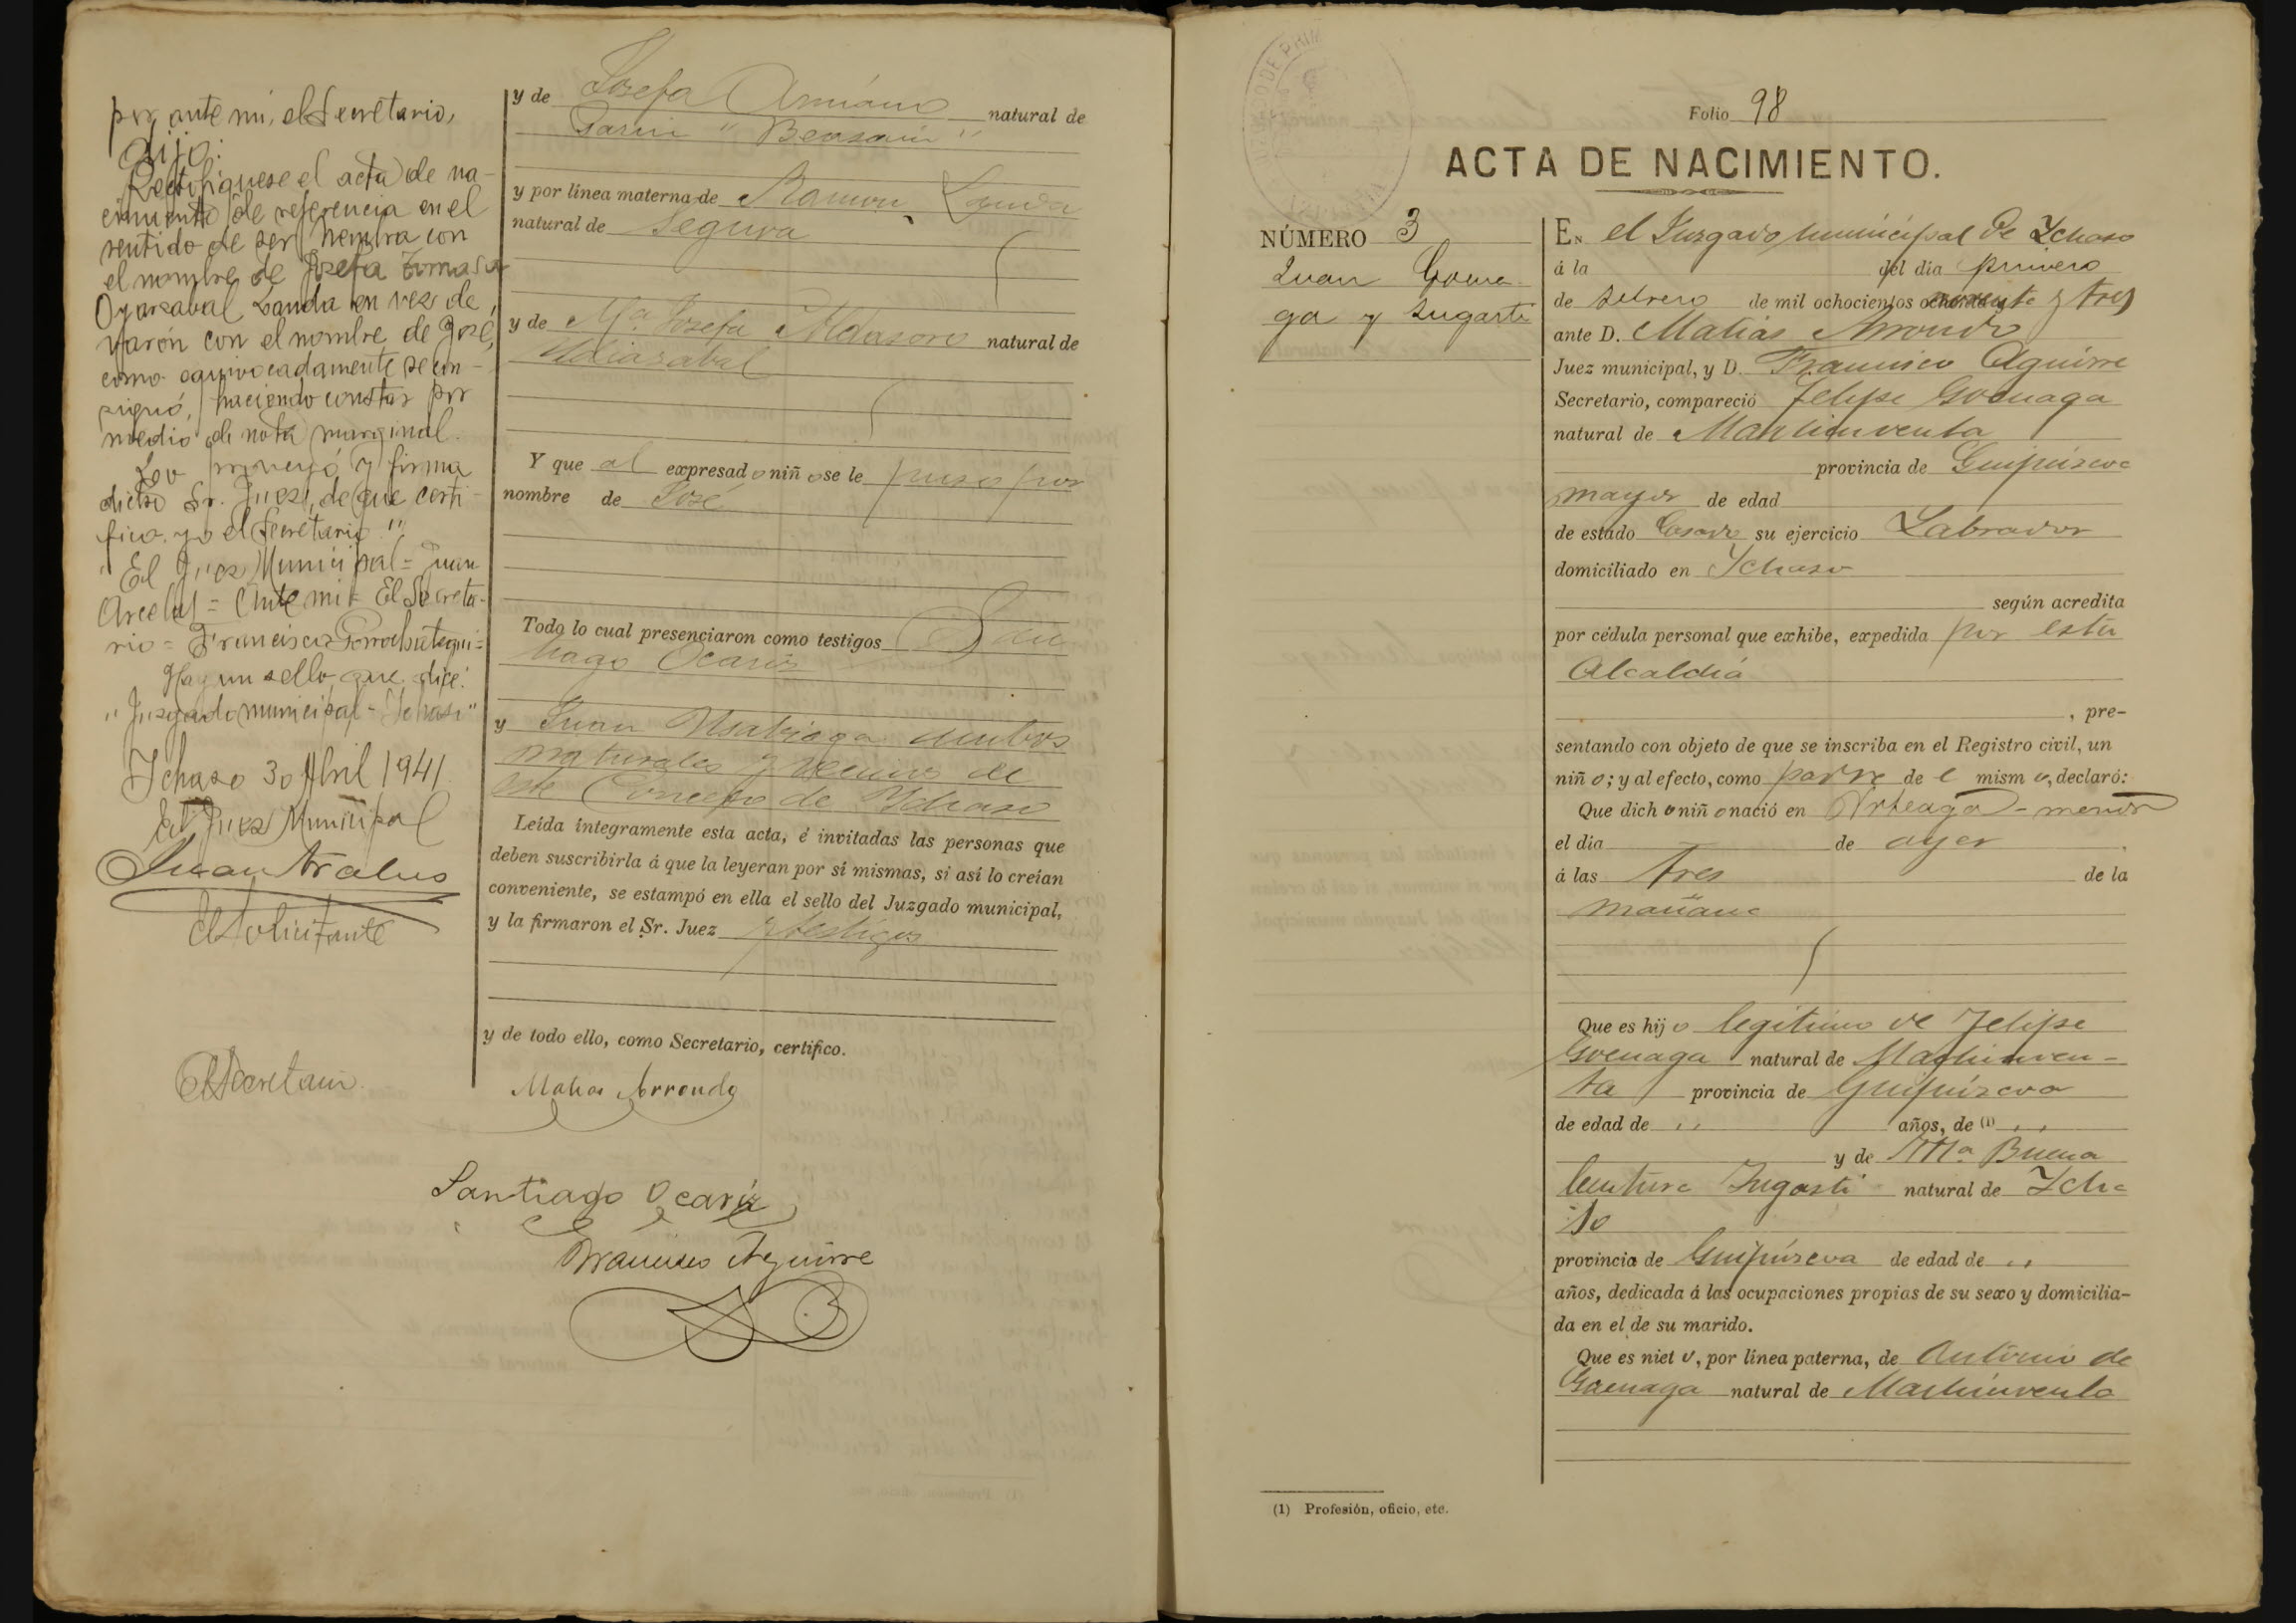 por ante mí, el Secretario,
dijo:
Rectifíquese el acta de na-
cimiento de referencia en el
sentido de ser hembra con
el nombre de Josefa Tomasa
Oyarzabal Landa en vez de
varón con el nombre de José,
como equivocadamente se con-
signó, haciendo constar por
medio de nota marginal.
Lo proveyó y firma
dicho Sr. Juez, de que certi-
fico yo el Secretario."
"El Juez Municipal = Juan
Arcelus = Ante mí = El Secreta-
rio = Francisco Gorrochategui =
Hay un sello que dice:
"Juzgado municipal - Ichaso"
Ichaso 30 Abril 1941.
El Juez Municipal
Juan Arcelus
El Solicitante
El Secretario.
y de Josefa natural de
Garin " Beasain "
y por línea materna de Ramon Landa
natural de Segura
y de Mª Josefa natural de
Idiazabal
Y que al expresado niño se le puso por
nombre de José
Todo lo cual presenciaron como testigos San
tiago Ocariz
y Juan Usabiaga ambos
naturales y vecinos de
este Concejo de Ychaso
Leída íntegramente esta acta, é invitadas las personas que
deben suscribirla á que la leyeran por sí mismas, si así lo creían
conveniente, se estampó en ella el sello del Juzgado municipal,
y la firmaron el Sr. Juez y testigos
y de todo ello, como Secretario, certifico.
Matias Arrondo
Santiago Ocariz
Francisco Aguirre
JUZGADO DE PRIM
Folio 98
ACTA DE NACIMIENTO.
NÚMERO 3
Juan Goena
ga y Zugasti
EN el Juzgado municipal de Ychaso
á la del dia primero
de Febrero de mil ochocientos ochenta noventa y tres
ante D. Matias Arrondo
Juez municipal, y D. Francisco Aguirre
Secretario, compareció Felipe Goenaga
natural de Machinventa
provincia de Guipúzcoa
mayor de edad
de estado Casado su ejercicio Labrador
domiciliado en Ychaso
según acredita
por cédula personal que exhibe, expedida por esta
Alcaldia
, pre-
sentando con objeto de que se inscriba en el Registro civil, un
niño; y al efecto, como padre de el mismo, declaró:
Que dicho niño nació en Arteaga-menor
el dia de ayer,
á las tres de la
mañana
Que es hijo legitimo de Felipe
Goenaga natural de Machinven-
ta provincia de Guipúzcoa
de edad de " años, de (1) "
y de Mª Buena
bentura Zugasti natural de Ycha
so
provincia de Guipúzcoa de edad de "
años, dedicada á las ocupaciones propias de su sexo y domicilia-
da en el de su marido.
Que es nieto, por línea paterna, de Antonio de
Goenaga natural de Machinventa
(1) Profesión, oficio, etc.